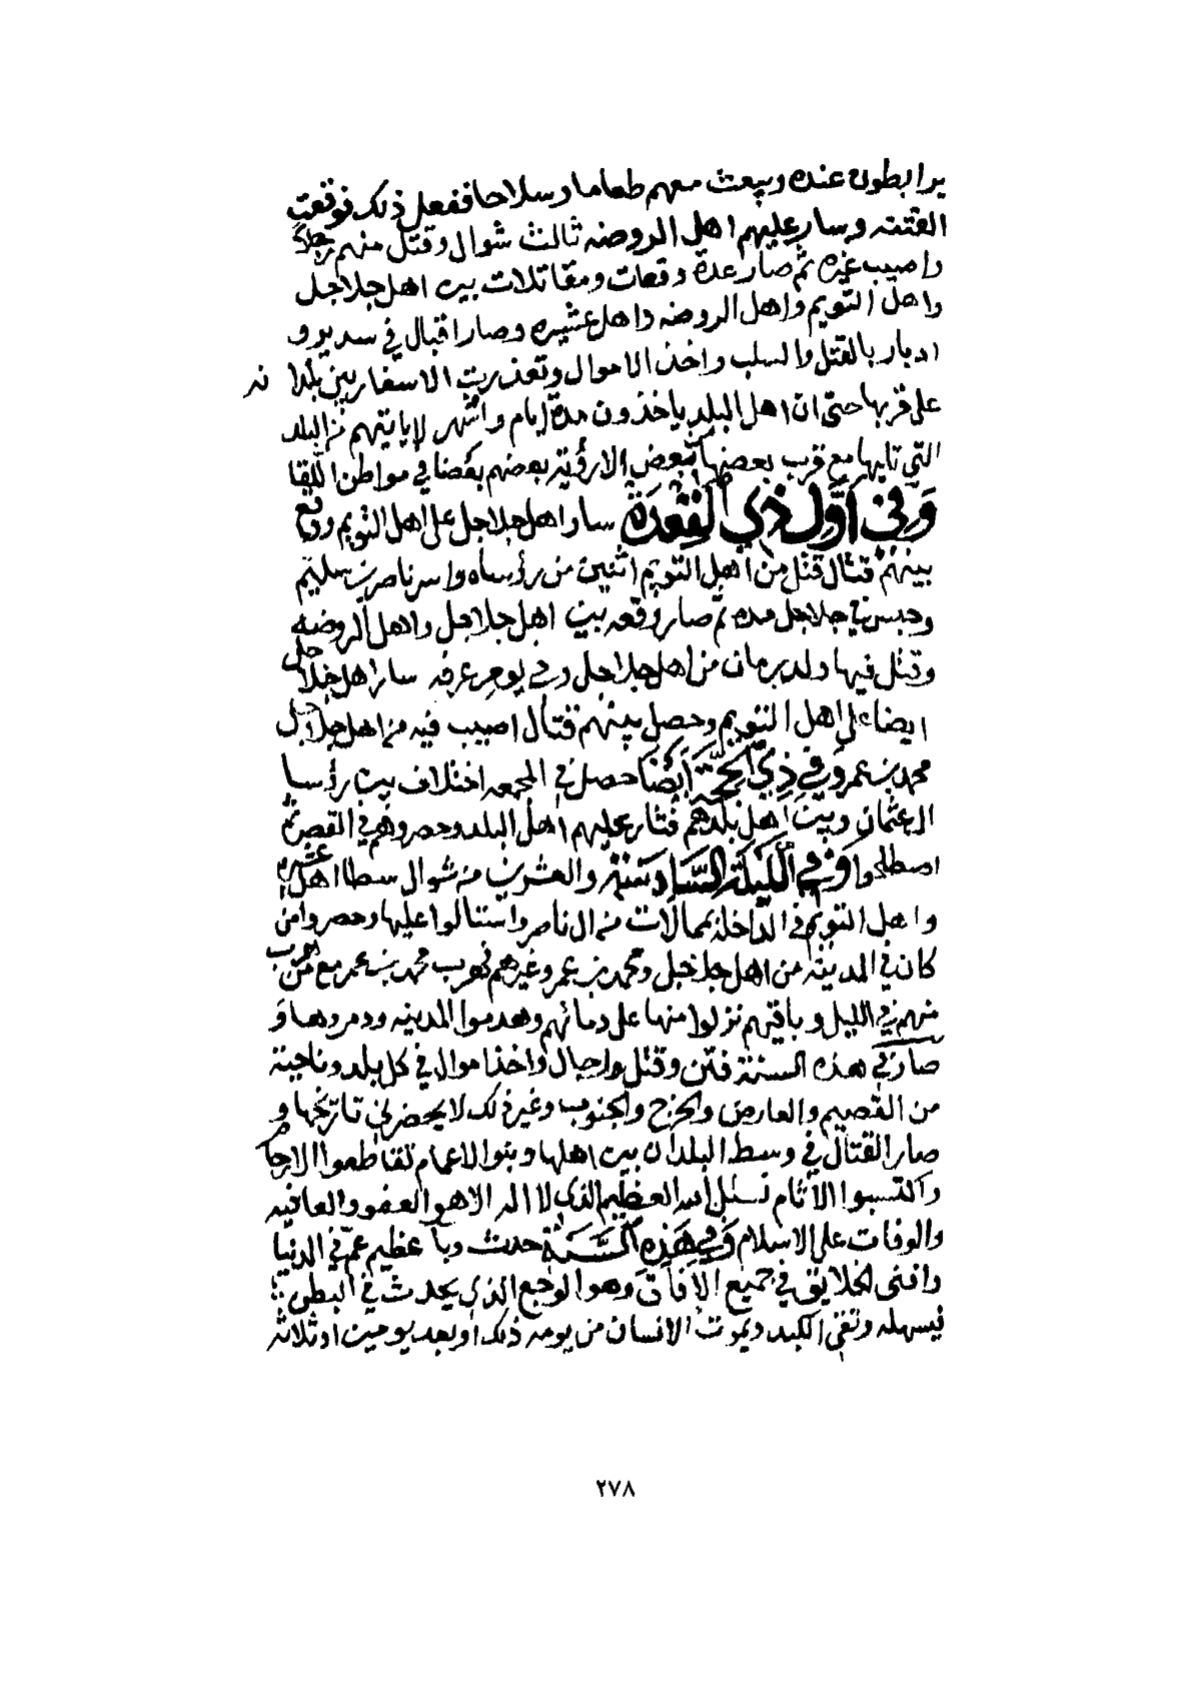 يرابطون عنده ويبعث معهم طعاما وسلاحا ففعل ذلك فوقعت
الفتنه وسار عليهم اهل الروضه ثالث شوال وقتل منهم رجلا
واصيب غيره ثم صار عدة وقعات ومقاتلات بين اهل جلاجل
واهل التويم واهل الروضه واهل عشيره وصار اقبال في سدير و
ادبار بالقتل والسلب واخذ الاموال وتعذرت الاسفار بين بلدانه
على قربها حتى ان اهل البلد ياخذون مدة ايام واشهر لاياتيهم من البلد
التي تليها مع قرب بعضها لبعض الا رؤية بعضهم بعضا في مواطن اللقا
وَفي اوَّل ذي القعْدَة سار اهل جلاجل على اهل التويم ووقع
بينهم قتال قتل من اهل التويم اثنين من رؤساه واسر ناصر بن سليم
وحبس في جلاجل مده ثم صار وقعه بين اهل جلاجل واهل الروضه
وقتل فيها ولد برمان من اهل جلاجل وفي يوم عرفه سار اهل جلاجل
ايضا على اهل التويم وحصل بينهم قتال اصيب فيه من اهل جلاجل
محمد بن عمر وَفي ذِي الحِجَّة أيضًا حصل في المجمعه اختلاف بين رؤسا
ال عثمان وبين اهل بلدهم فثار عليهم اهل البلد وحصروهم في القصر ثم
اصطلحوا وَفي اللّيلَة السَّادسَة والعشرين من شوال سطا اهل عشيره
واهل التويم في الداخله بممالات من ال ناصر واستالوا عليها وحصروا من
كان في المدينه من اهل جلاجل ومحمد بن عمر وغيرهم فهرب محمد بن عمر مع من هرب
منهم في الليل وباقيهم نزلوا منها على دمائهم وهدموا المدينه ودمروها وَ
صار في هذه السنة فتن وقتل رجال واخذ اموال في كل بلد وناحية
من القصيم والعارض والخرج والجنوب وغير ذلك لا يحضرني تاريخها و
صار القتال في وسط البلدان بين اهلها وبنوا الاعمام تقاطعوا الارحام
واكتسبوا الآثام نسئل الله العظيم الذي لا اله الا هو العفو والعافيه
والوفات على الاسلام وَفي هَذِه السَّنَة حدث وبآ عظيم عمّ في الدنيا
وافنى الخلايق في جميع الآفاق وهو الوجع الذي يحدث في البطن
فيسهله وتقي الكبد ويموت الانسان من يومه ذلك او بعد يومين او ثلاثه
٢٧٨